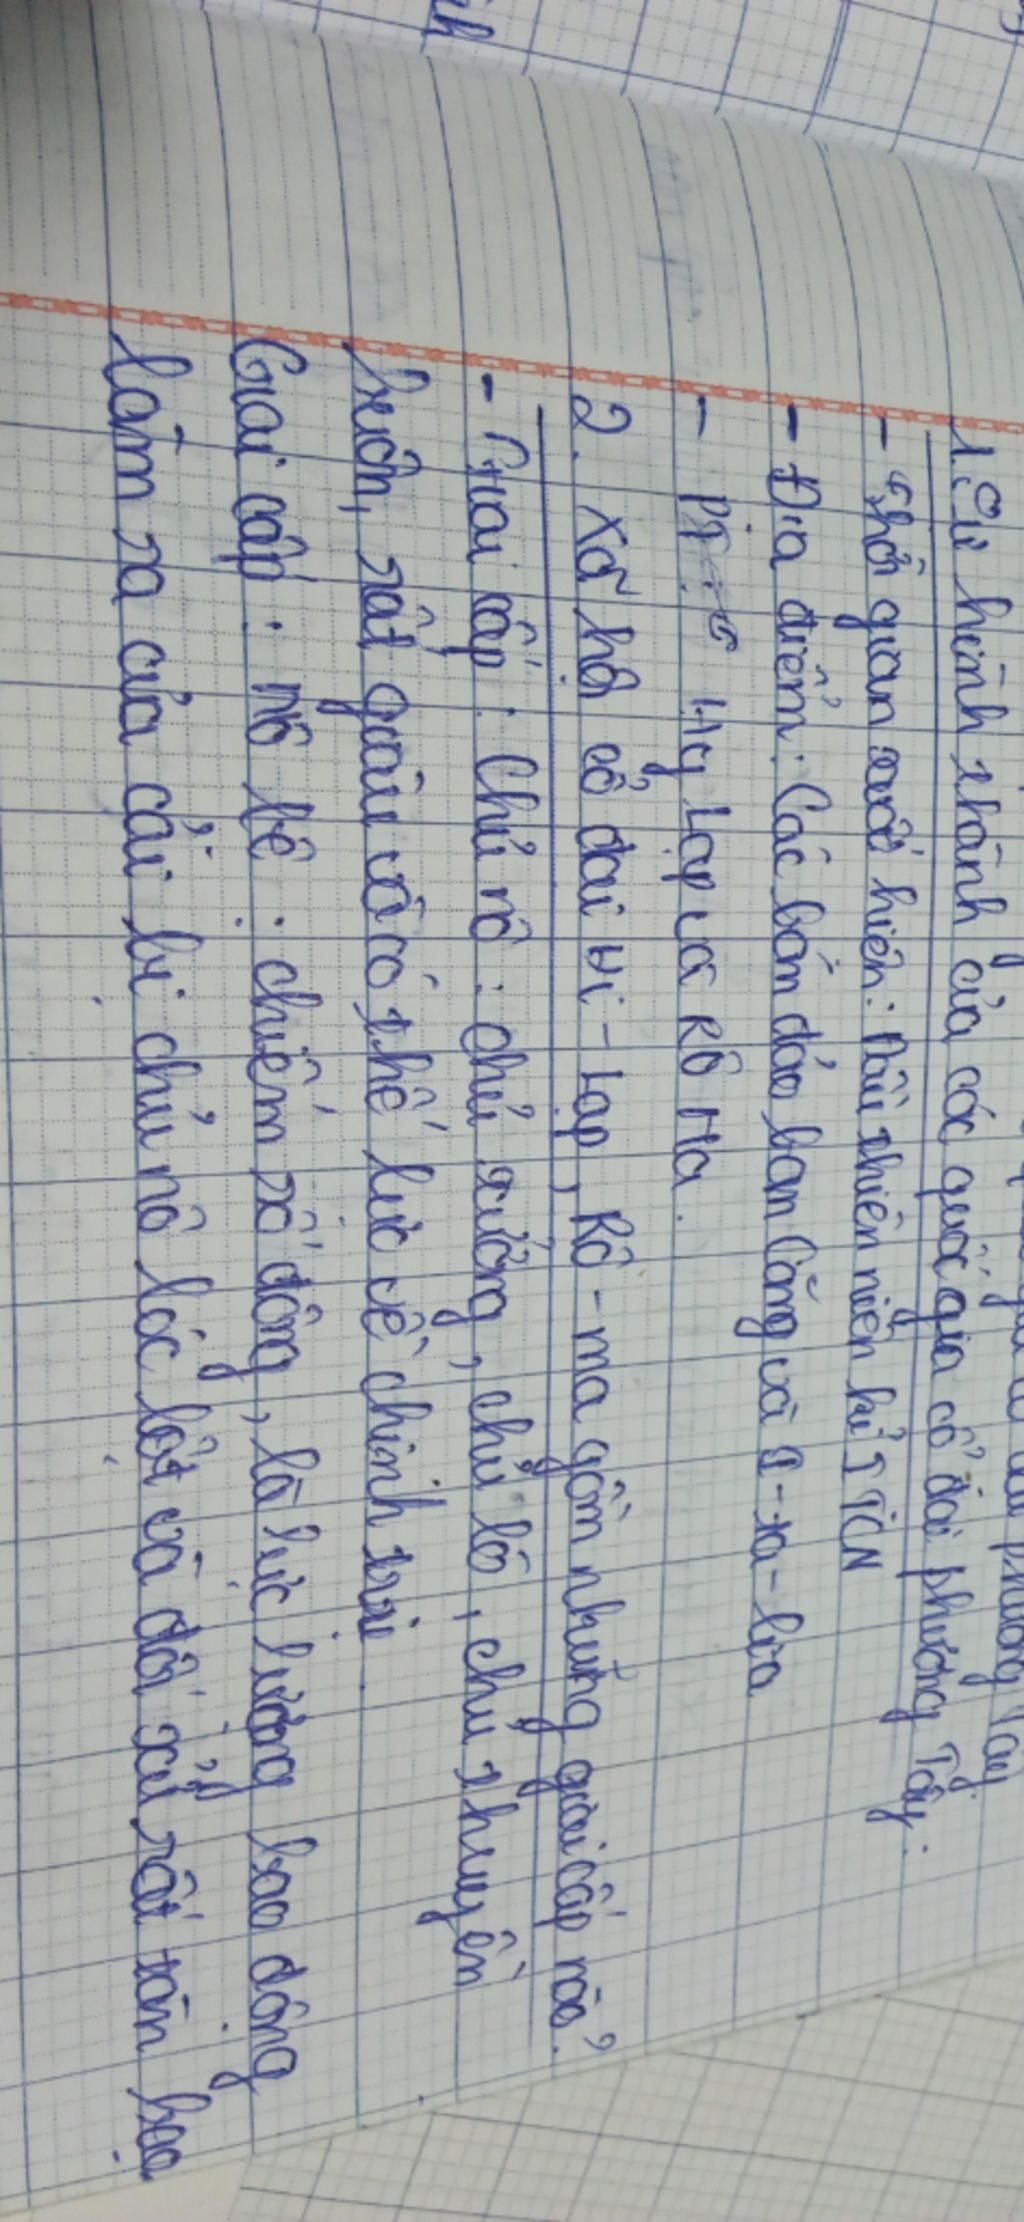 phương Tây
1. Sự hình thành của các quốc gia cổ đại phương Tây.
- Thời gian xuất hiện: Đầu thiên niên kỉ I TCN
- Địa điểm: Các bán đảo ban Căng và I-ta-lia
- Hy Lạp và Rô Ma.
2. Xã hội cổ đại Hi-Lạp, Rô-ma gồm những giai cấp nào?
- Giai cấp: Chủ nô: chủ xưởng, chủ lò, chủ thuyền
buôn, rất giàu và có thế lực về chính trị.
Giai cấp: nô lệ: chiếm số đông, là lực lượng lao động
làm ra của cải bị chủ nô bóc lột và đối xử rất tàn bạo